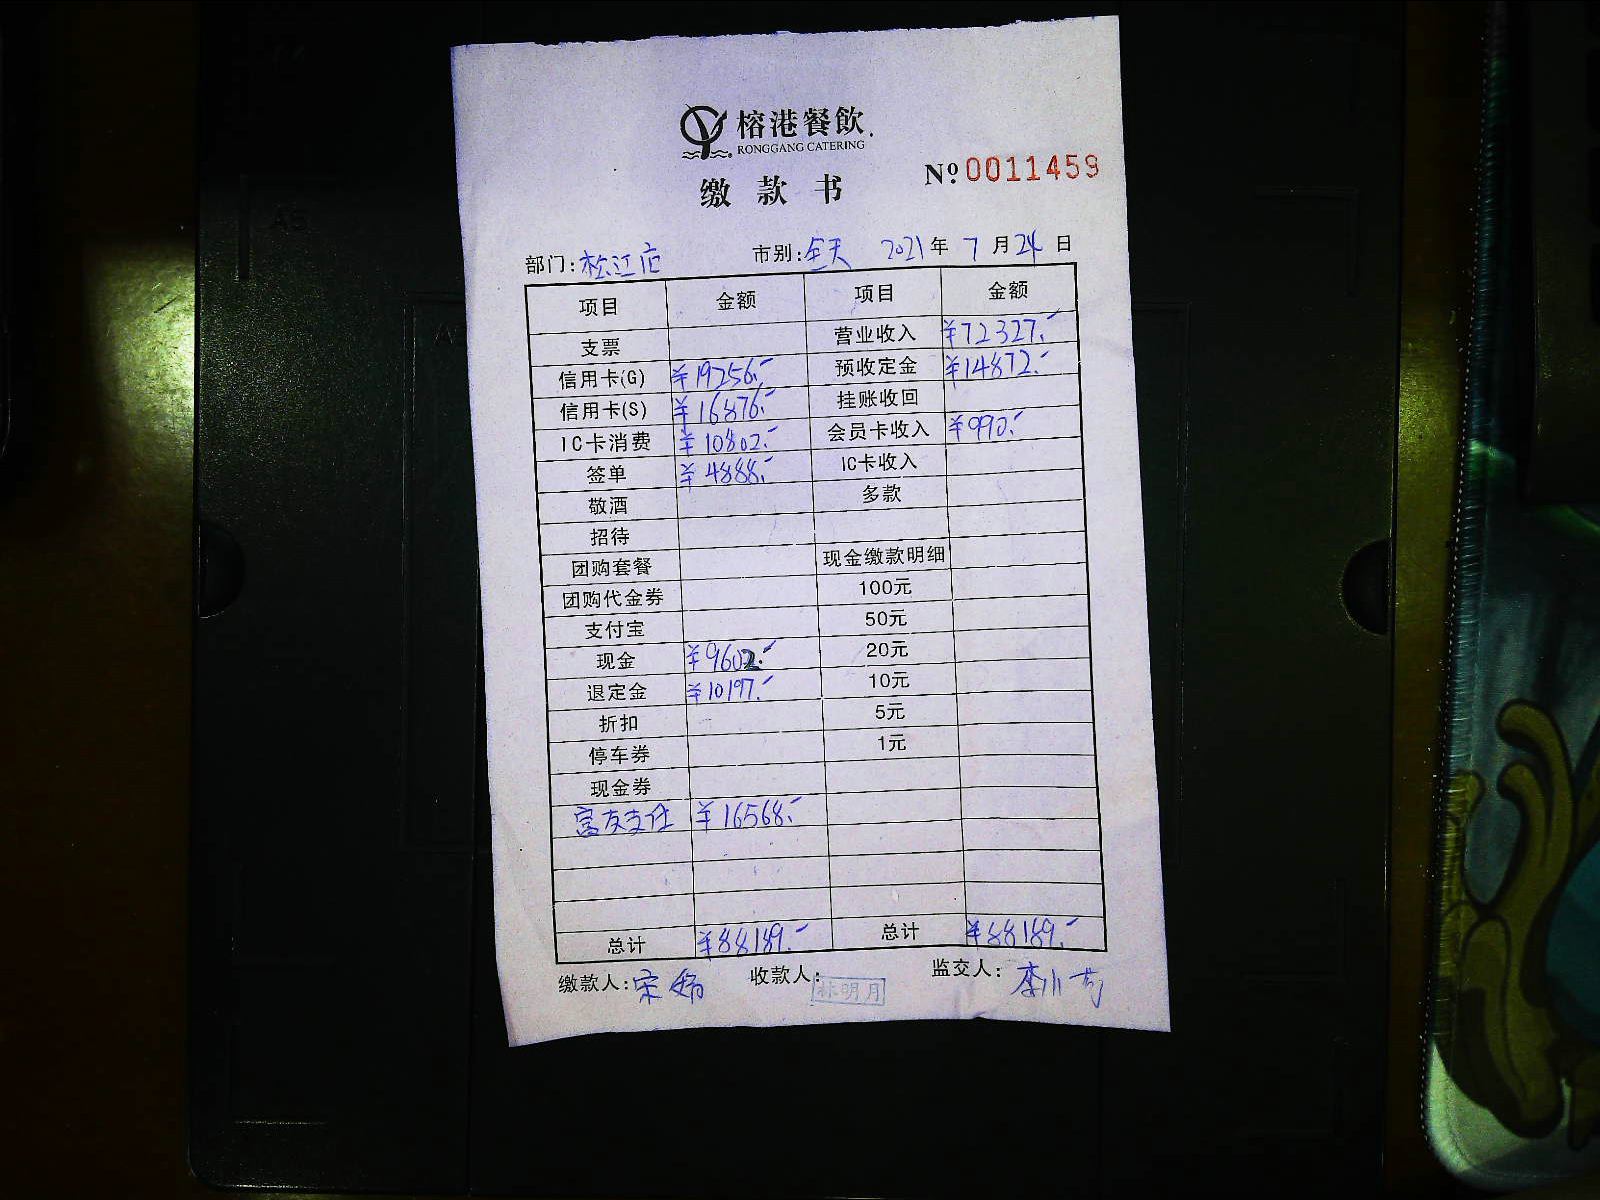 榕港餐飲
RONGGANG CATERING
缴款书
Nº 0011459
部门:松江店 市别:全天 2021年7月24日
项目 金额 项目 金额
支票 营业收入 ¥72327.-
信用卡(G) ¥19256.- 预收定金 ¥14872.-
信用卡(S) ¥16876.- 挂账收回
IC卡消费 ¥10802.- 会员卡收入 ¥990.-
签单 ¥4888.- IC卡收入
敬酒 多款
招待
团购套餐 现金缴款明细
团购代金券 100元
支付宝 50元
现金 ¥9602.- 20元
退定金 ¥10197.- 10元
折扣 5元
停车券 1元
现金券
富友支付 ¥16568.-
总计 ¥88189.- 总计 ¥88189.-
缴款人:宋 收款人:林明月 监交人:李小